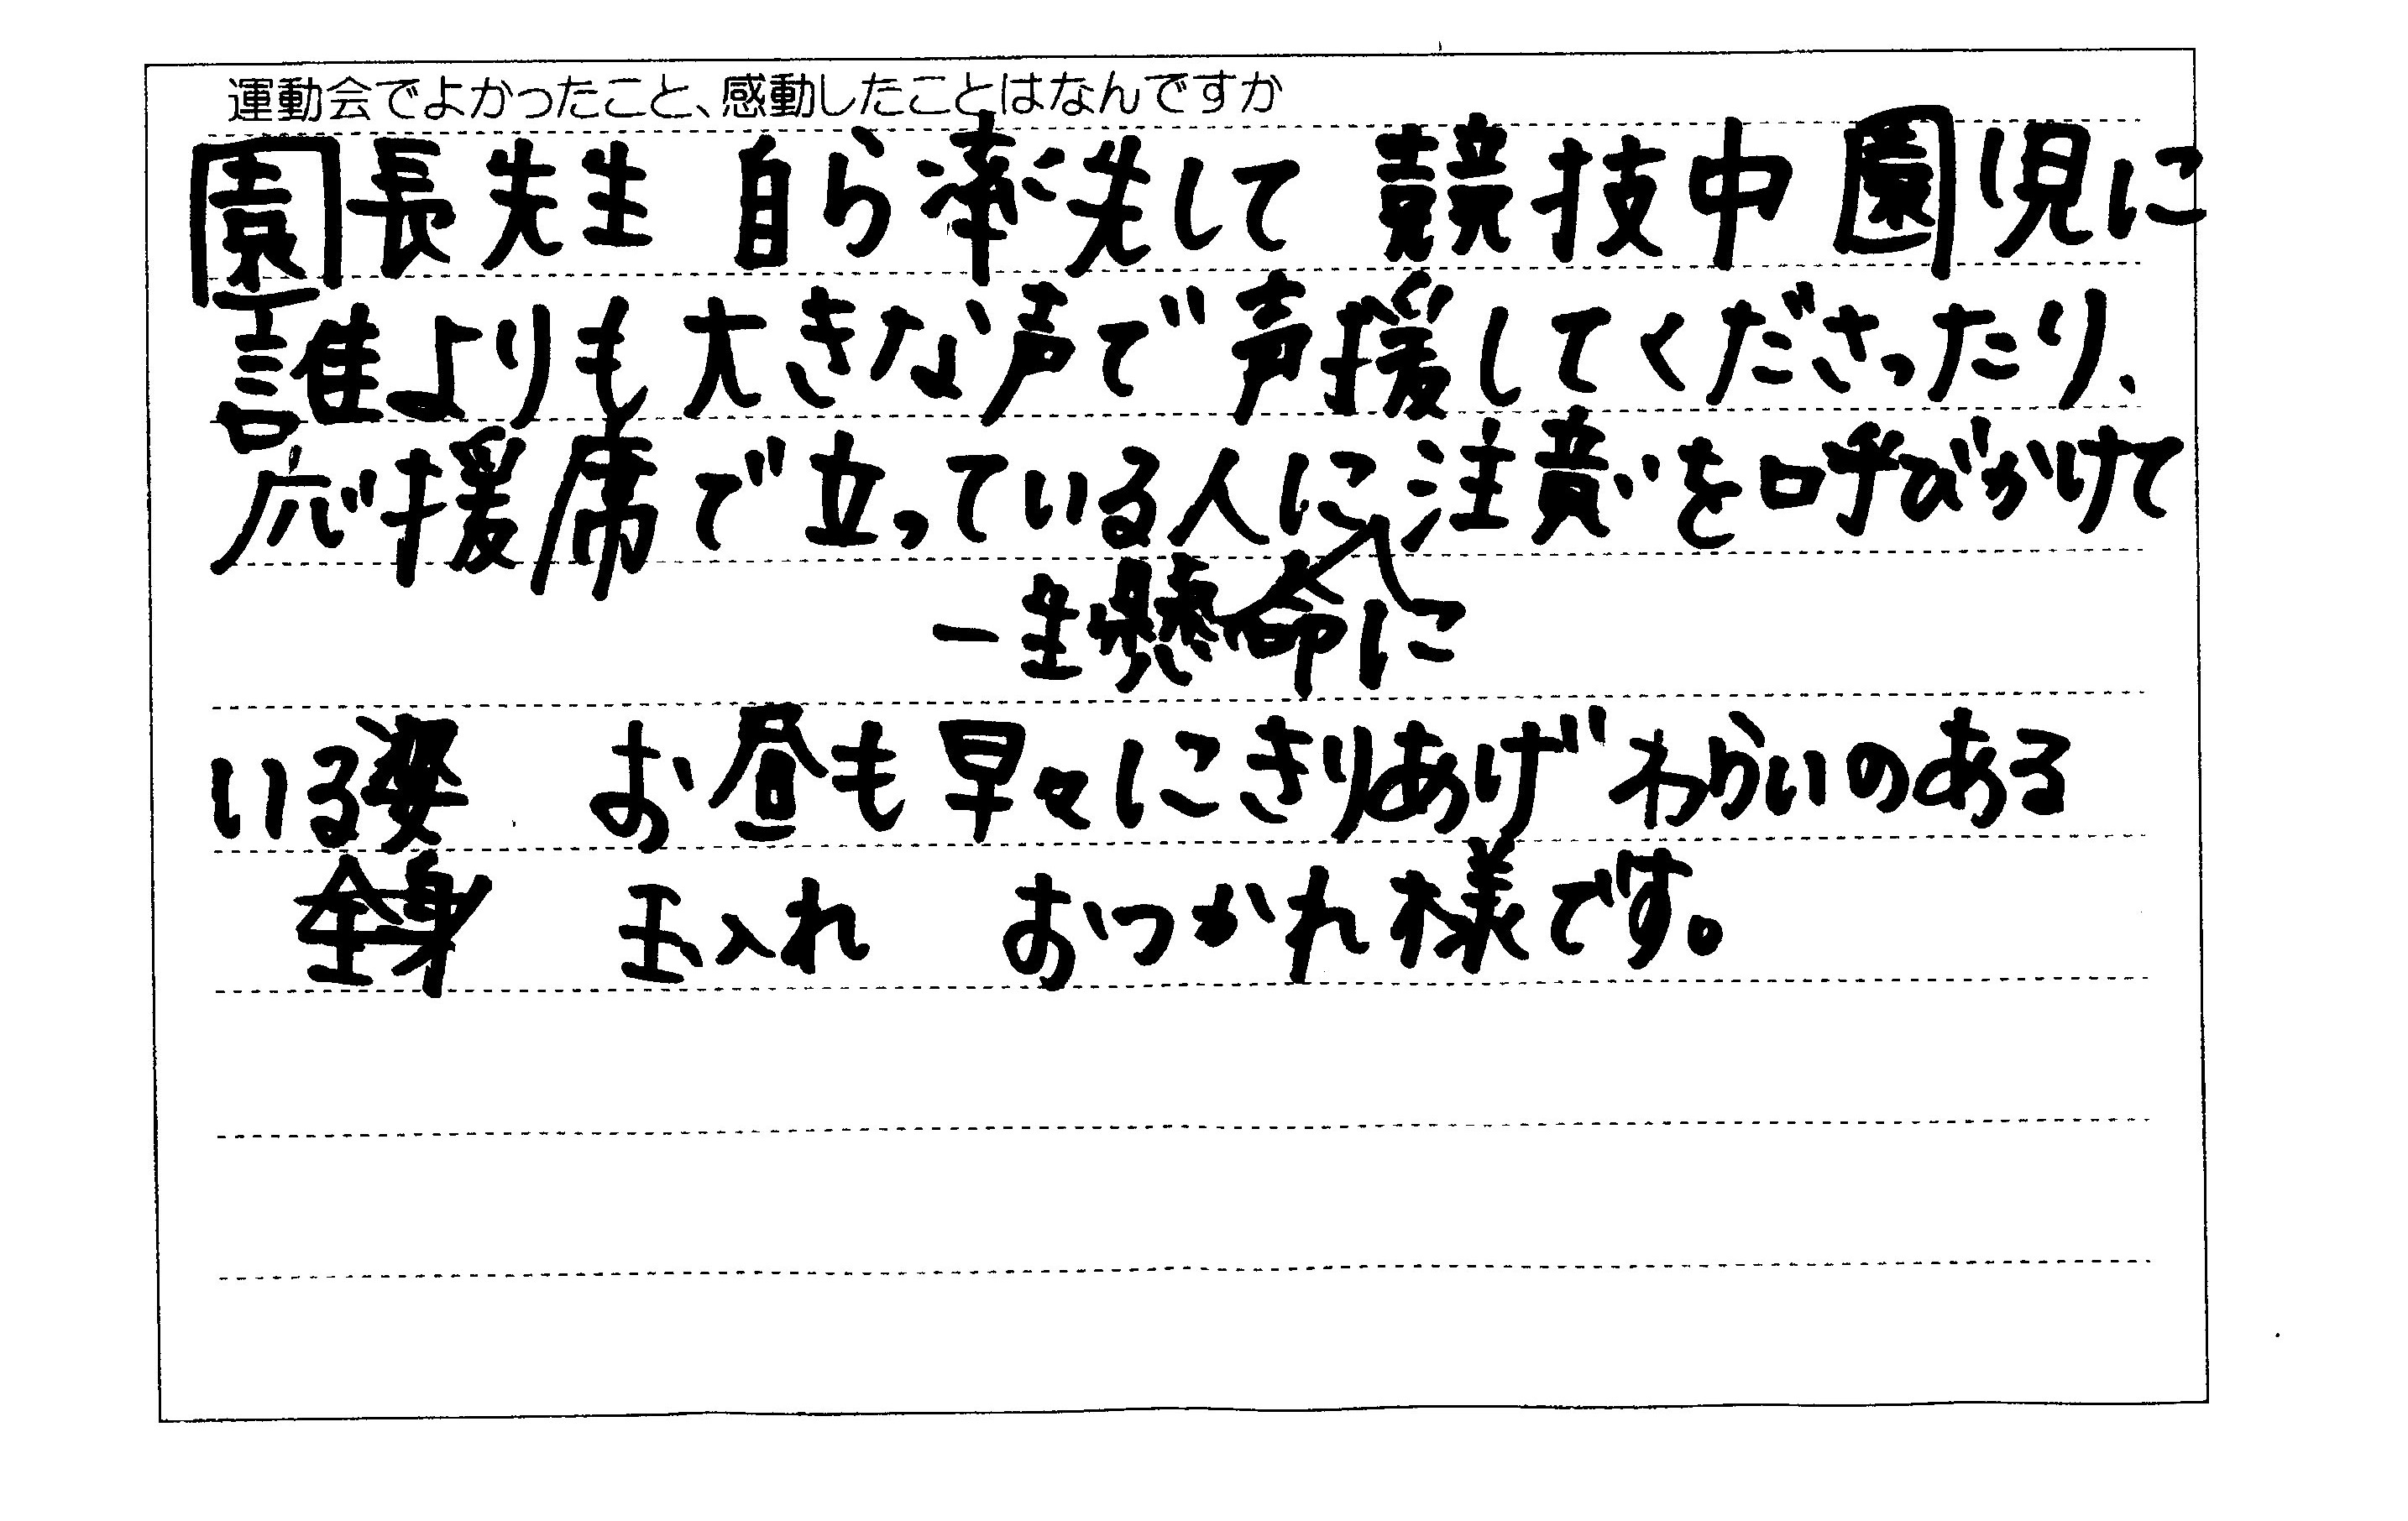 運動会でよかったこと、感動したことはなんですか
園長先生 自ら率先して 競技中 園児に
誰よりも大きな声で声援してくださったり、
応援席で立っている人に注意を呼びかけて
一生懸命に
いる姿 お昼も早々にきりあげ わらいのある
全身 玉入れ おつかれ様です。